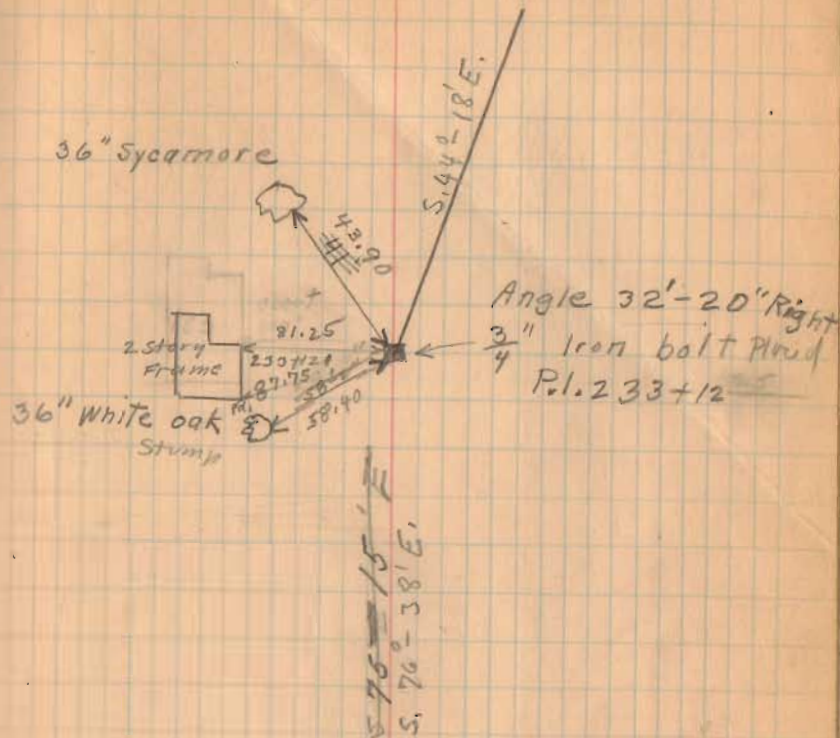 S. 44°-18' E.
36" Sycamore
43.90
Angle 32'-20" Right
3/4" Iron bolt Pl'ud
P.I. 233+12
81.25
2 Story
Frame
233+12
87.75
58.40
36" White oak
Stump
S 76 - 15' E
S. 76°- 38' E.